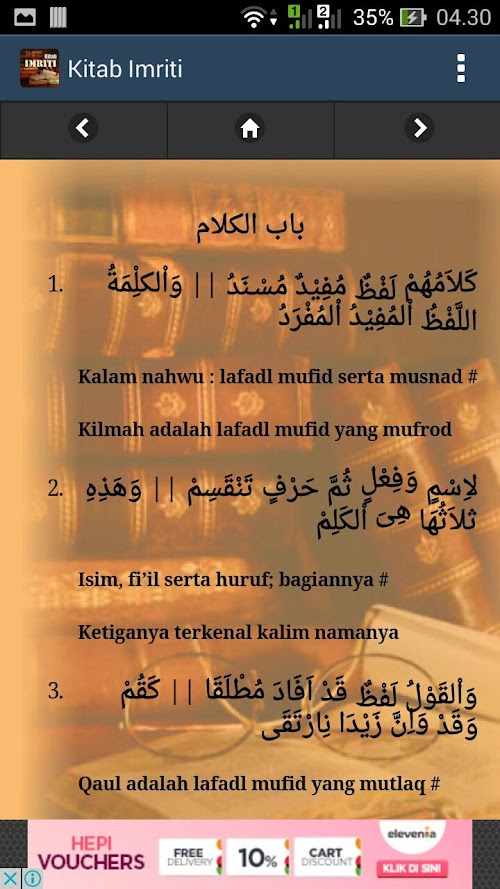 1
2
35%
04.30
Kitab
IMRITI
Kitab Imriti
باب الكلام
1. كَلاَمُهُمْ لَفْظٌ مُفِيْدٌ مُسْنَدُ || وَاْلكَلِمَةُ
اللَّفْظُ اْلمُفِيْدُ اْلمُفْرَدُ
Kalam nahwu : lafadl mufid serta musnad #
Kilmah adalah lafadl mufid yang mufrod
2. لاِسْمٍ وَفِعْلٍ ثُمَّ حَرْفٍ تَنْقَسِمْ || وَهَذِهِ
ثلاَثُهَا هِىَ اْلكَلِمْ
Isim, fi’il serta huruf; bagiannya #
Ketiganya terkenal kalim namanya
3. وَاْلقَوْلُ لَفْظٌ قَدْ اَفَادَ مُطْلَقَا || كَقُمْ
وَقَدْ وَاِنَّ زَيْدَا نِارْتَقَى
Qaul adalah lafadl mufid yang mutlaq #
HEPI
VOUCHERS
FREE
DELIVERY
10%
CART
DISCOUNT
elevenia
KLIK DI SINI